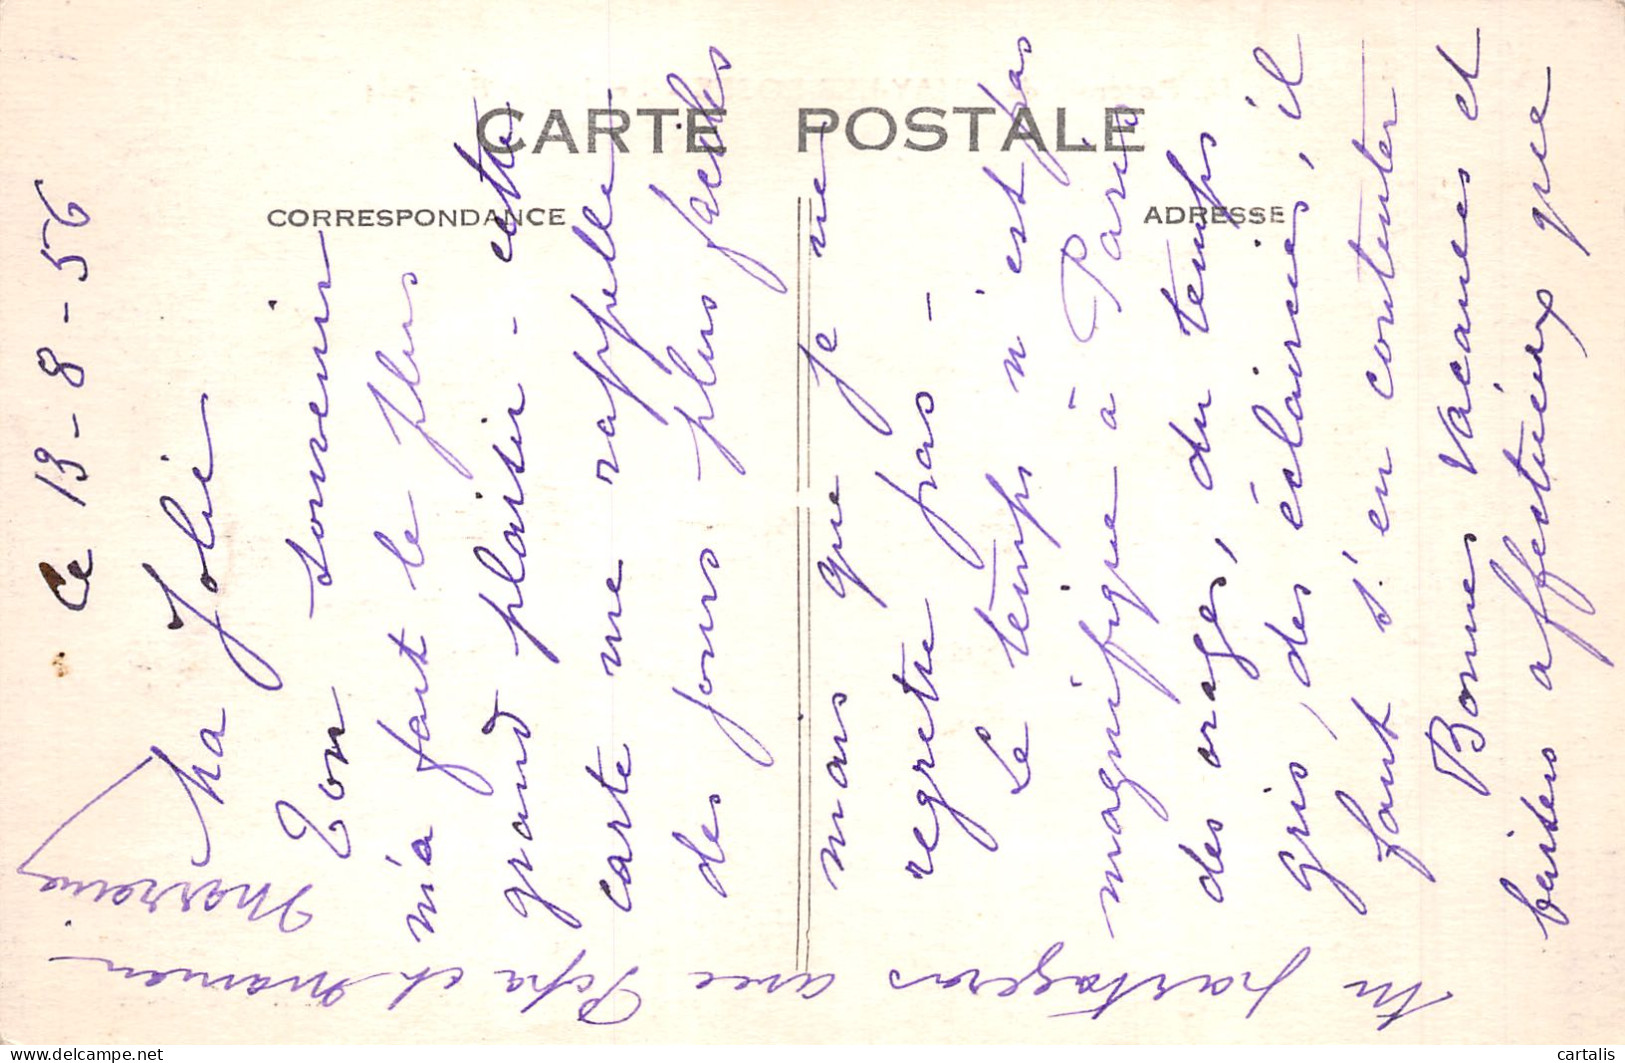 CARTE POSTALE
CORRESPONDANCE
ADRESSE
Ce 13-8-56
Ma Jolie
Ton souvenir
m'a fait le plus
grand plaisir - cette
carte me rappelle
des jours plus faciles
mais que je ne
regrette pas -
Le temps n'est pas
magnifique à Paris
des orages, du temps
gris, des éclaircies, il
faut s'en contenter
Bonnes vacances et
baisers affectueux que
tu partageras avec Papa et Maman -
Marraine
cartalis